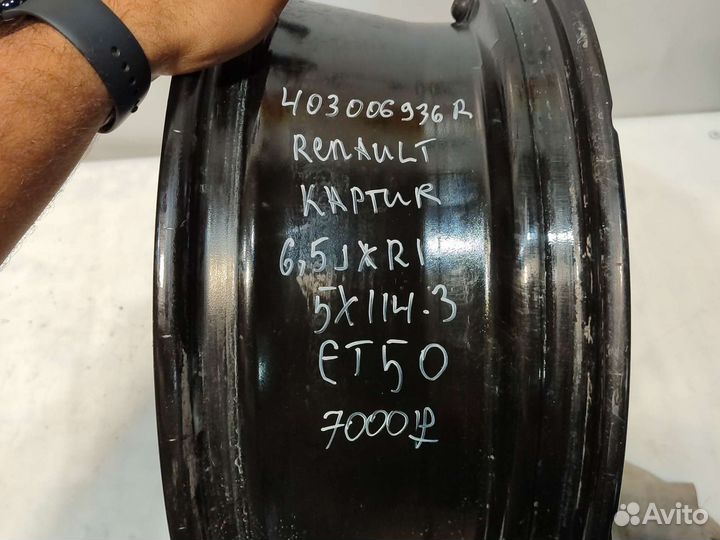 403006936R
RENAULT
КАРТИR
6,5JXR1
5X114.3
ET50
7000₽
Avito